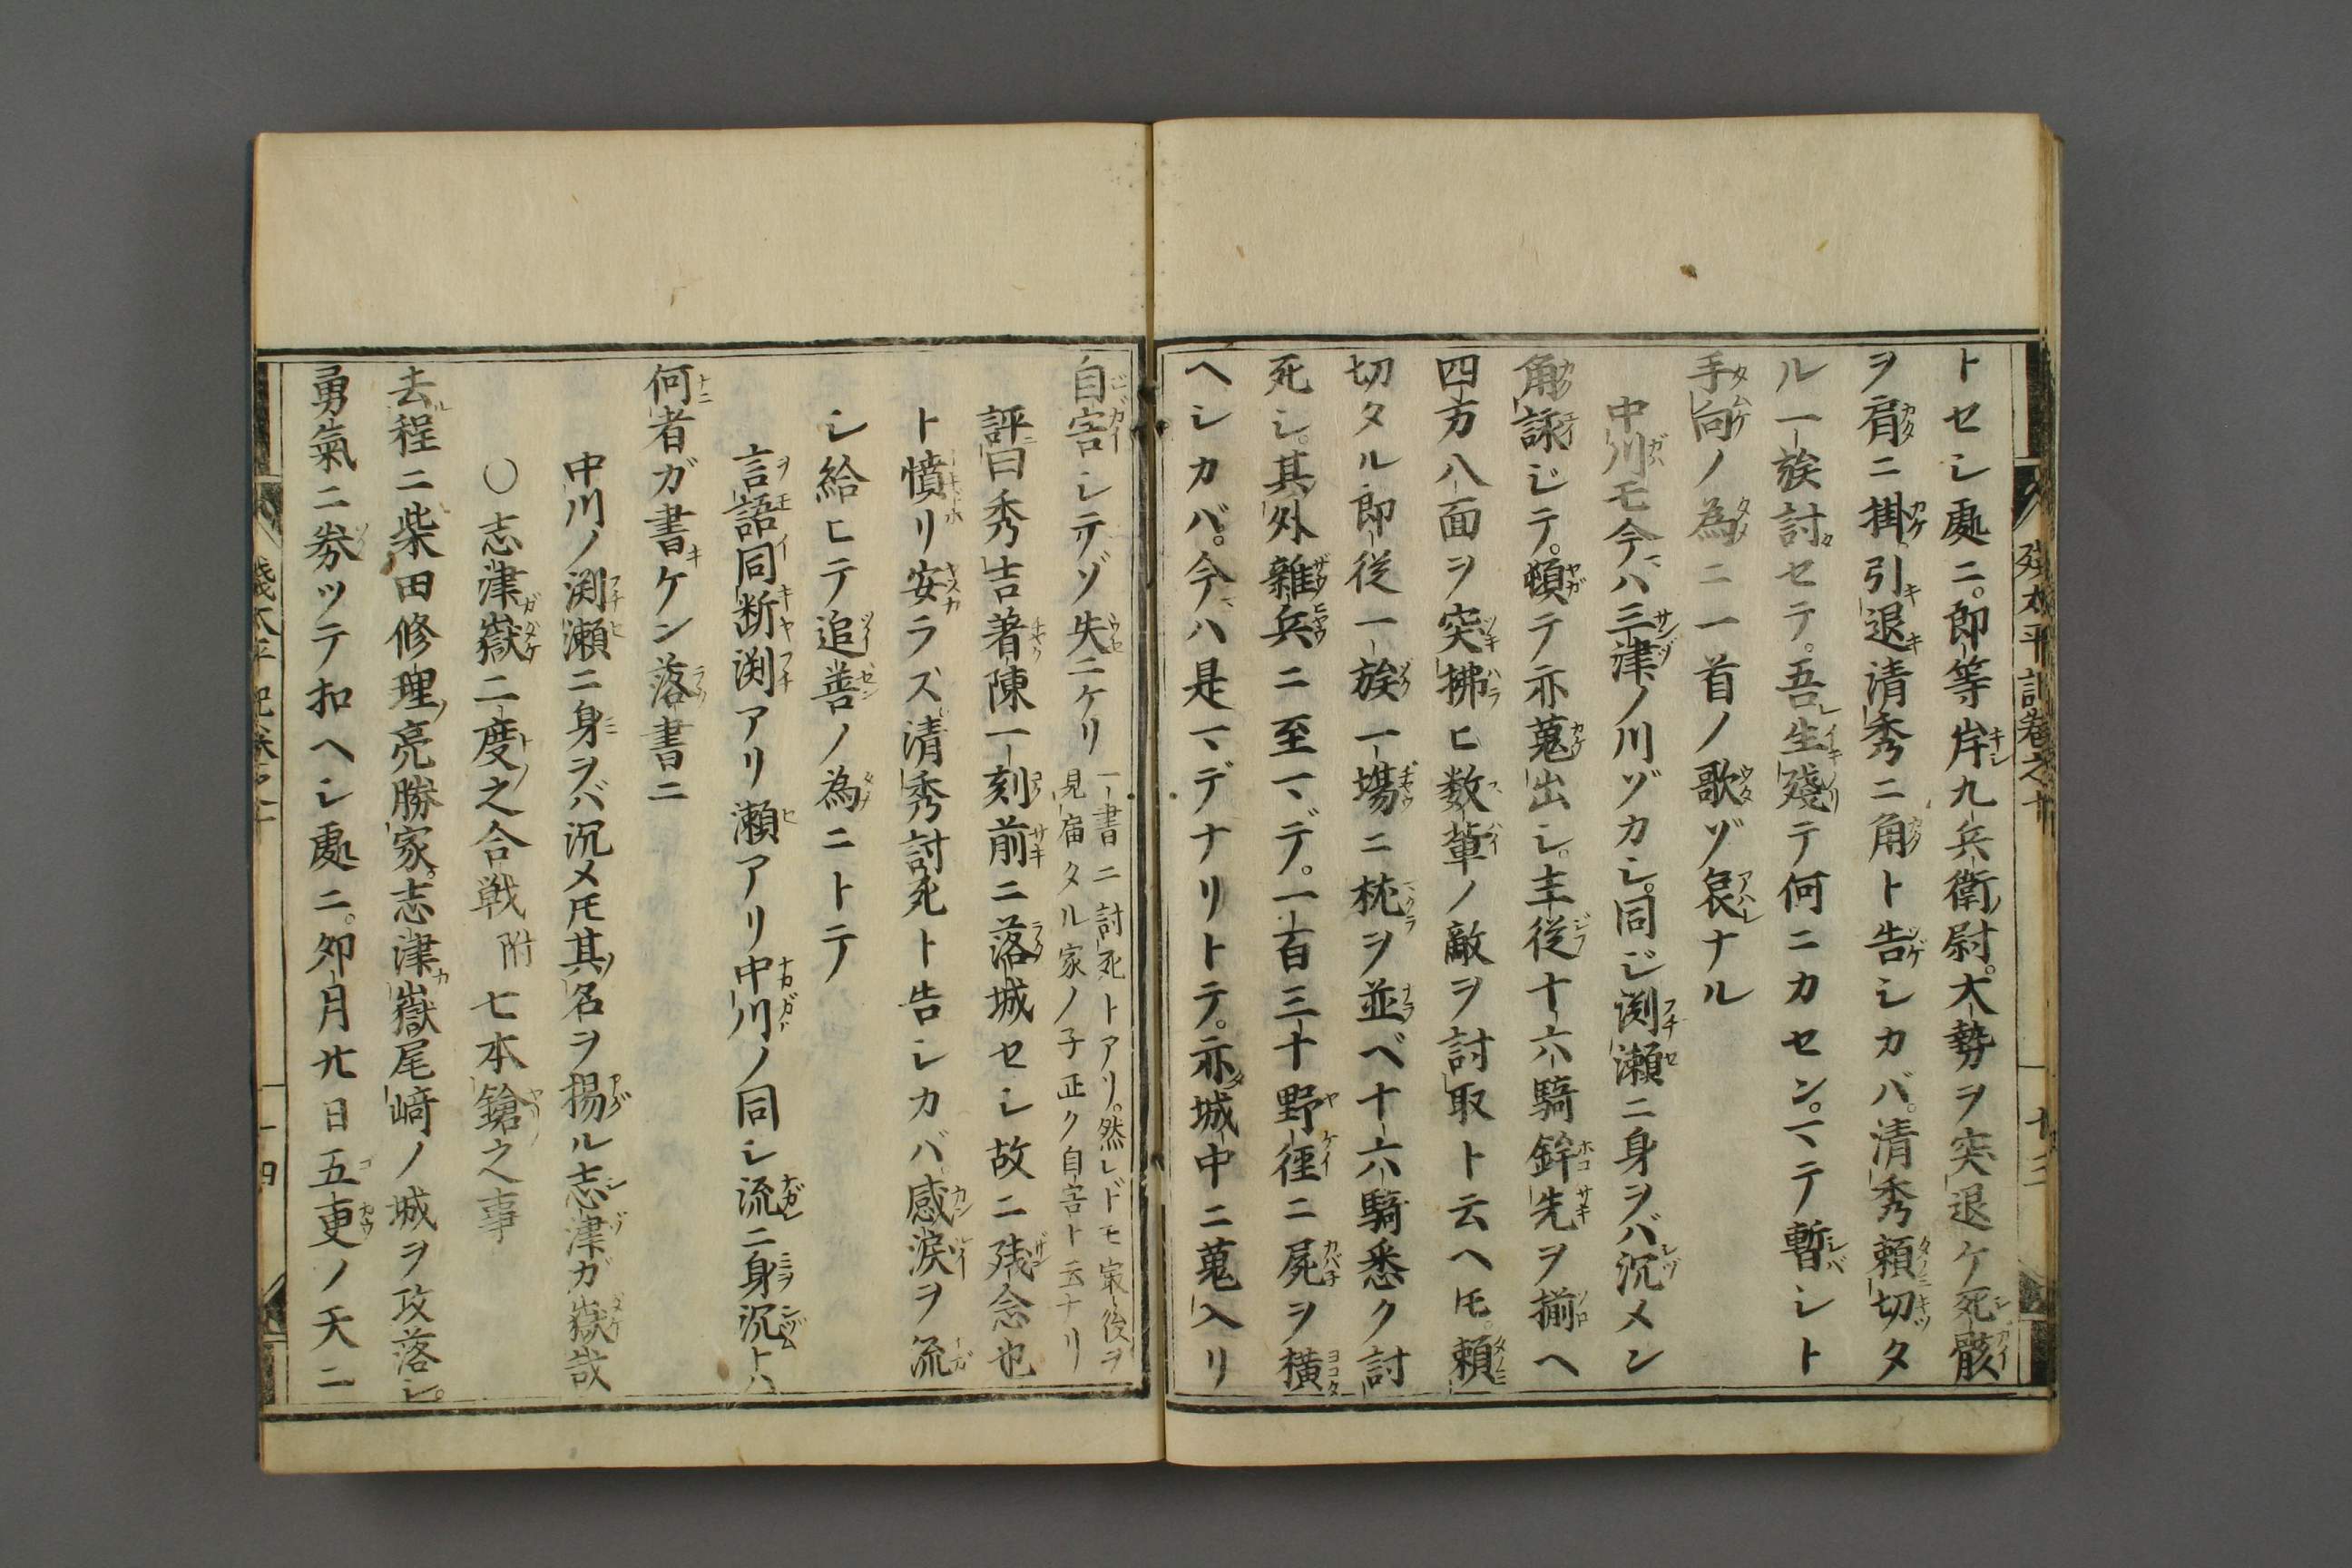 トセシ處ニ。即等岸九兵衛尉。大勢ヲ突退ケ死骸
ヲ肩ニ掛。引退清秀ニ角ト告シカバ。清秀頼切タ
ル一族討セテ。吾生殘テ何ニカセン。マテ暫シト
手向ノ為ニ一首ノ歌ゾ哀ナル
中川モ今ハ三津ノ川ゾカシ。同ジ渕瀬ニ身ヲバ沉メン
角詠ジテ。頓テ亦蒐出シ。主従十六騎鉾先ヲ揃ヘ
四方八面ヲ突拂ヒ数輩ノ敵ヲ討取ト云ヘ𪜈。頼
切タル即従一族一塲ニ枕ヲ並ベ十六騎悉ク討
死シ。其外雜兵ニ至マデ。一百三十野徑ニ屍ヲ横
ヘシカバ。今ハ是マデナリトテ。亦城中ニ蒐入リ
殘太平記卷之十
十三
自害シテゾ失ニケリ
一書ニ討死トアリ。然レドモ㝡後ヲ
見届タル家ノ子正ク自害ト云ナリ
評曰秀吉着陳一刻前ニ落城セシ故ニ残念也
ト憤リ安カラズ清秀討死ト告シカバ感涙ヲ流
シ給ヒテ追善ノ為ニトテ
言語同断渕アリ瀬アリ中川ノ同シ流ニ身沉トハ
何者ガ書ケン落書ニ
中川ノ渕瀬ニ身ヲバ沉メ𪜈其名ヲ揚ル志津ガ嶽哉
○志津嶽二度之合戦附七本鎗之事
去程ニ柴田修理亮勝家。志津嶽尾﨑ノ城ヲ攻落シ。
勇氣ニ劵ツテ扣ヘシ處ニ。卯月廿日五更ノ天ニ
十四